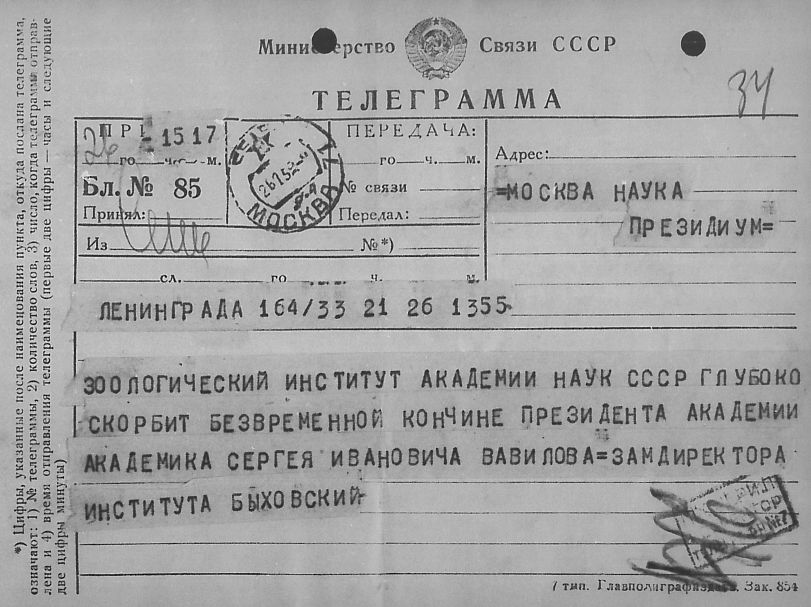 Министерство Связи СССР
ТЕЛЕГРАММА
34
15 17
го ч. м.
Бл. № 85
Принял:
МОСКВА
ПЕРЕДАЧА:
го ч. м.
№ связи
Передал:
Адрес:
=МОСКВА НАУКА
ПРЕЗИДИУМ=
Из №*)
сл. го ч. м.
ЛЕНИНГРАДА 164/33 21 26 1355
ЗООЛОГИЧЕСКИЙ ИНСТИТУТ АКАДЕМИИ НАУК СССР ГЛУБОКО
СКОРБИТ БЕЗВРЕМЕННОЙ КОНЧИНЕ ПРЕЗИДЕНТА АКАДЕМИИ
АКАДЕМИКА СЕРГЕЯ ИВАНОВИЧА ВАВИЛОВА=ЗАМДИРЕКТОРА
ИНСТИТУТА БЫХОВСКИЙ
7 тип. Главполиграфиздата. Зак. 854
*) Цифры, указанные после наименования пункта, откуда послана телеграмма,
означают: 1) № телеграммы, 2) количество слов, 3) число, когда телеграмма отправ-
лена и 4) время отправления телеграммы (первые две цифры — часы и следующие
две цифры минуты)